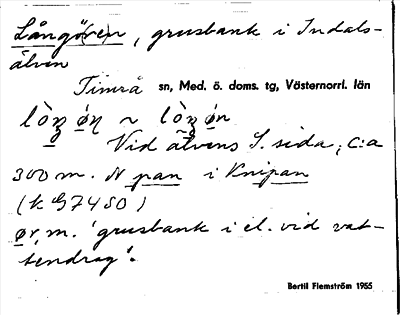 Långö(r)en, grusbank i Indals-
älven
Timrå sn, Med. ö. doms. tg, Västernorrl. län
lòŋ ǿn ~ lòŋ ǿn
Vid älvens S. sida, c:a
300 m. N pan i Knipan
(k G7450)
ør, m. 'grusbank i el. vid vat-
tendrag'.
Bertil Flemström 1955